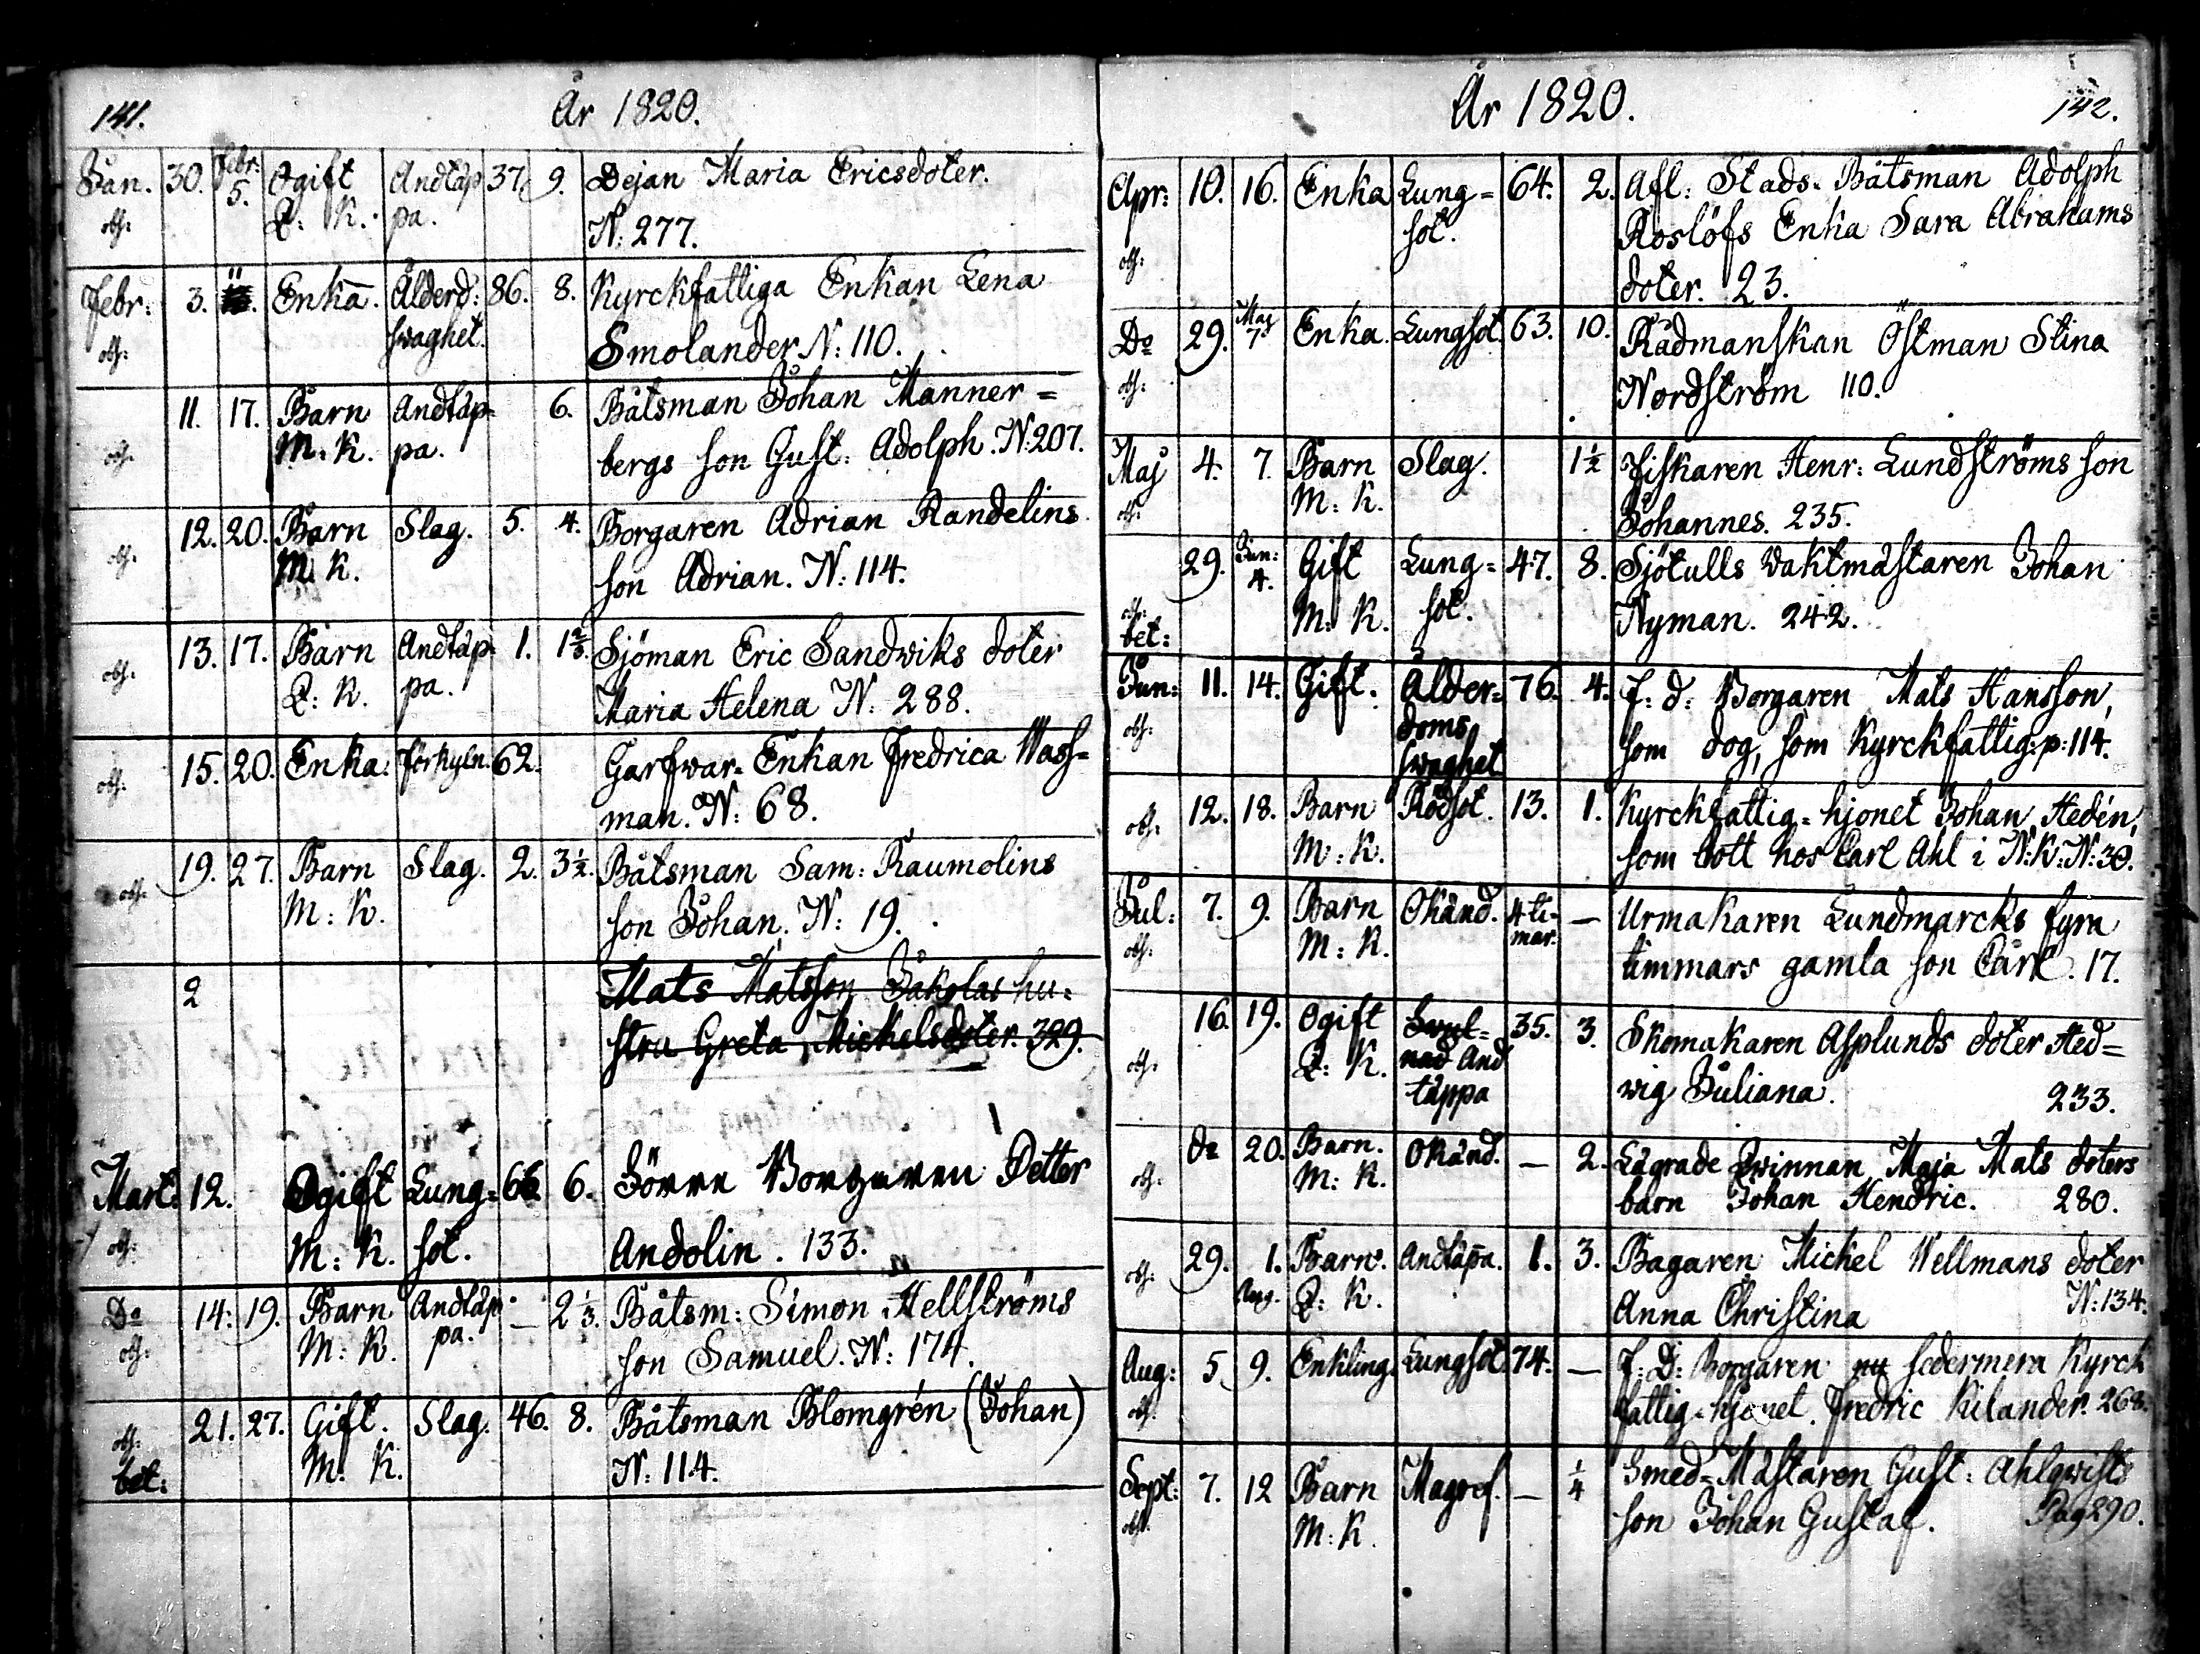 141. År 1820.
Jan. 30. Febr: 5. Ogift Andtäp 37. 9. Dejan Maria Ericsdoter.
obs: Q: K. pa. N: 277.
Febr: 3. Enka. Ålderd: 86. 8. Kyrckfattiga Enkan Lena
obs: swaghet. Smolander N: 110.
11. 17. Barn Andtäp- 6. Båtsman Johan Manner=
obs: M: K. pa. bergs son Gust: Adolph. N:207.
12. 20. Barn Slag. 5. 4. Borgaren Adrian Randelins
obs: M: K. son Adrian. N: 114.
13. 17. Barn Andtäp- 1. Sjöman Eric Sandwiks doter
obs: Q: K. pa. Maria Helena N: 288.
15. 20. Enka. förkyln. 62. Garfwar- Enkan Fredrica Wass-
obs: man. N: 68.
19. 27. Barn Slag. 2. 3½. Båtsman Sam: Raumolins
obs: M: K. son Johan. N: 19.
2 Mats Matsson Jakolas hu-
stru Greta Mickelsdoter. 329.
Mart: 12. Ogift Lung- 66. 6. Förre Borgaren Petter
obs: M: K. sot. Andolin. 133.
Do 14. 19. Barn Andtäp- — 2⅓. Båtsm: Simon Hellströms
obs: M: K. pa. son Samuel. N: 174.
21. 27. Gift. Slag. 46. 8. Båtsman Blomgrén (Johan)
obs: bet: M: K. N: 114.
År 1820. 142.
Apr: 10. 16. Enka Lung= 64. 2. Afl: Stads-Båtsman Adolph
sot. Roslöfs Enka Sara Abrahams
obs: doter. 23.
Do 29. Maj 7 Enka. Lungsot. 63. 10. Rådmanskan Östman Stina
obs: Nordström 110.
Maj 4. 7. Barn Slag. 1½ Fiskaren Henr: Lundströms son
obs: M: K. Johannes. 235.
29. Jun: 4. Gift Lung= 47. 8. Sjötulls Vaktmästaren Johan
obs: bet: M: K. sot. Nyman. 242.
Jun: 11. 14. Gift. Ålder= 76. 4. F: d: Borgaren Mats Hansson,
obs: doms swaghet som dog, som Kyrckfattig: p: 114.
12. 18. Barn Rödsot. 13. 1. Kyrckfattig-hjonet Johan Hedén,
obs: M: K. som bott hos Carl Ahl i N:K:N: 30.
Jul: 7. 9. Barn Okänd. 4 ti- — Urmakaren Lundmarcks fyra
obs: M: K. mar. timmars gamla son Carl. 17.
16. 19. Ogift Swul= 35. 3. Skomakaren Asplunds doter Hed=
obs: Q: K. nad And wig Juliana. 233.
täppa
do 20. Barn. Okänd. — 2. Lägrade Qwinnan Maja Mats doters
obs: M: K. barn Johan Hendric. 280.
29. 1. Barn. Andtäppa. 1. 3. Bagaren Mickel Wellmans doter
obs: Aug. Q: K. Anna Christina N: 134.
Aug: 5. 9. Enkling. Lungsot. 74. — F: D: Borgaren sedermera Kyrck
obs: fattig-hjonet Fredric Kilander. 268.
Sept: 7. 12 Barn Magref. — ¼ Smed-Mästaren Gust: Ahlqwists
obs: M: K. son Johan Gustaf. Pag 290.